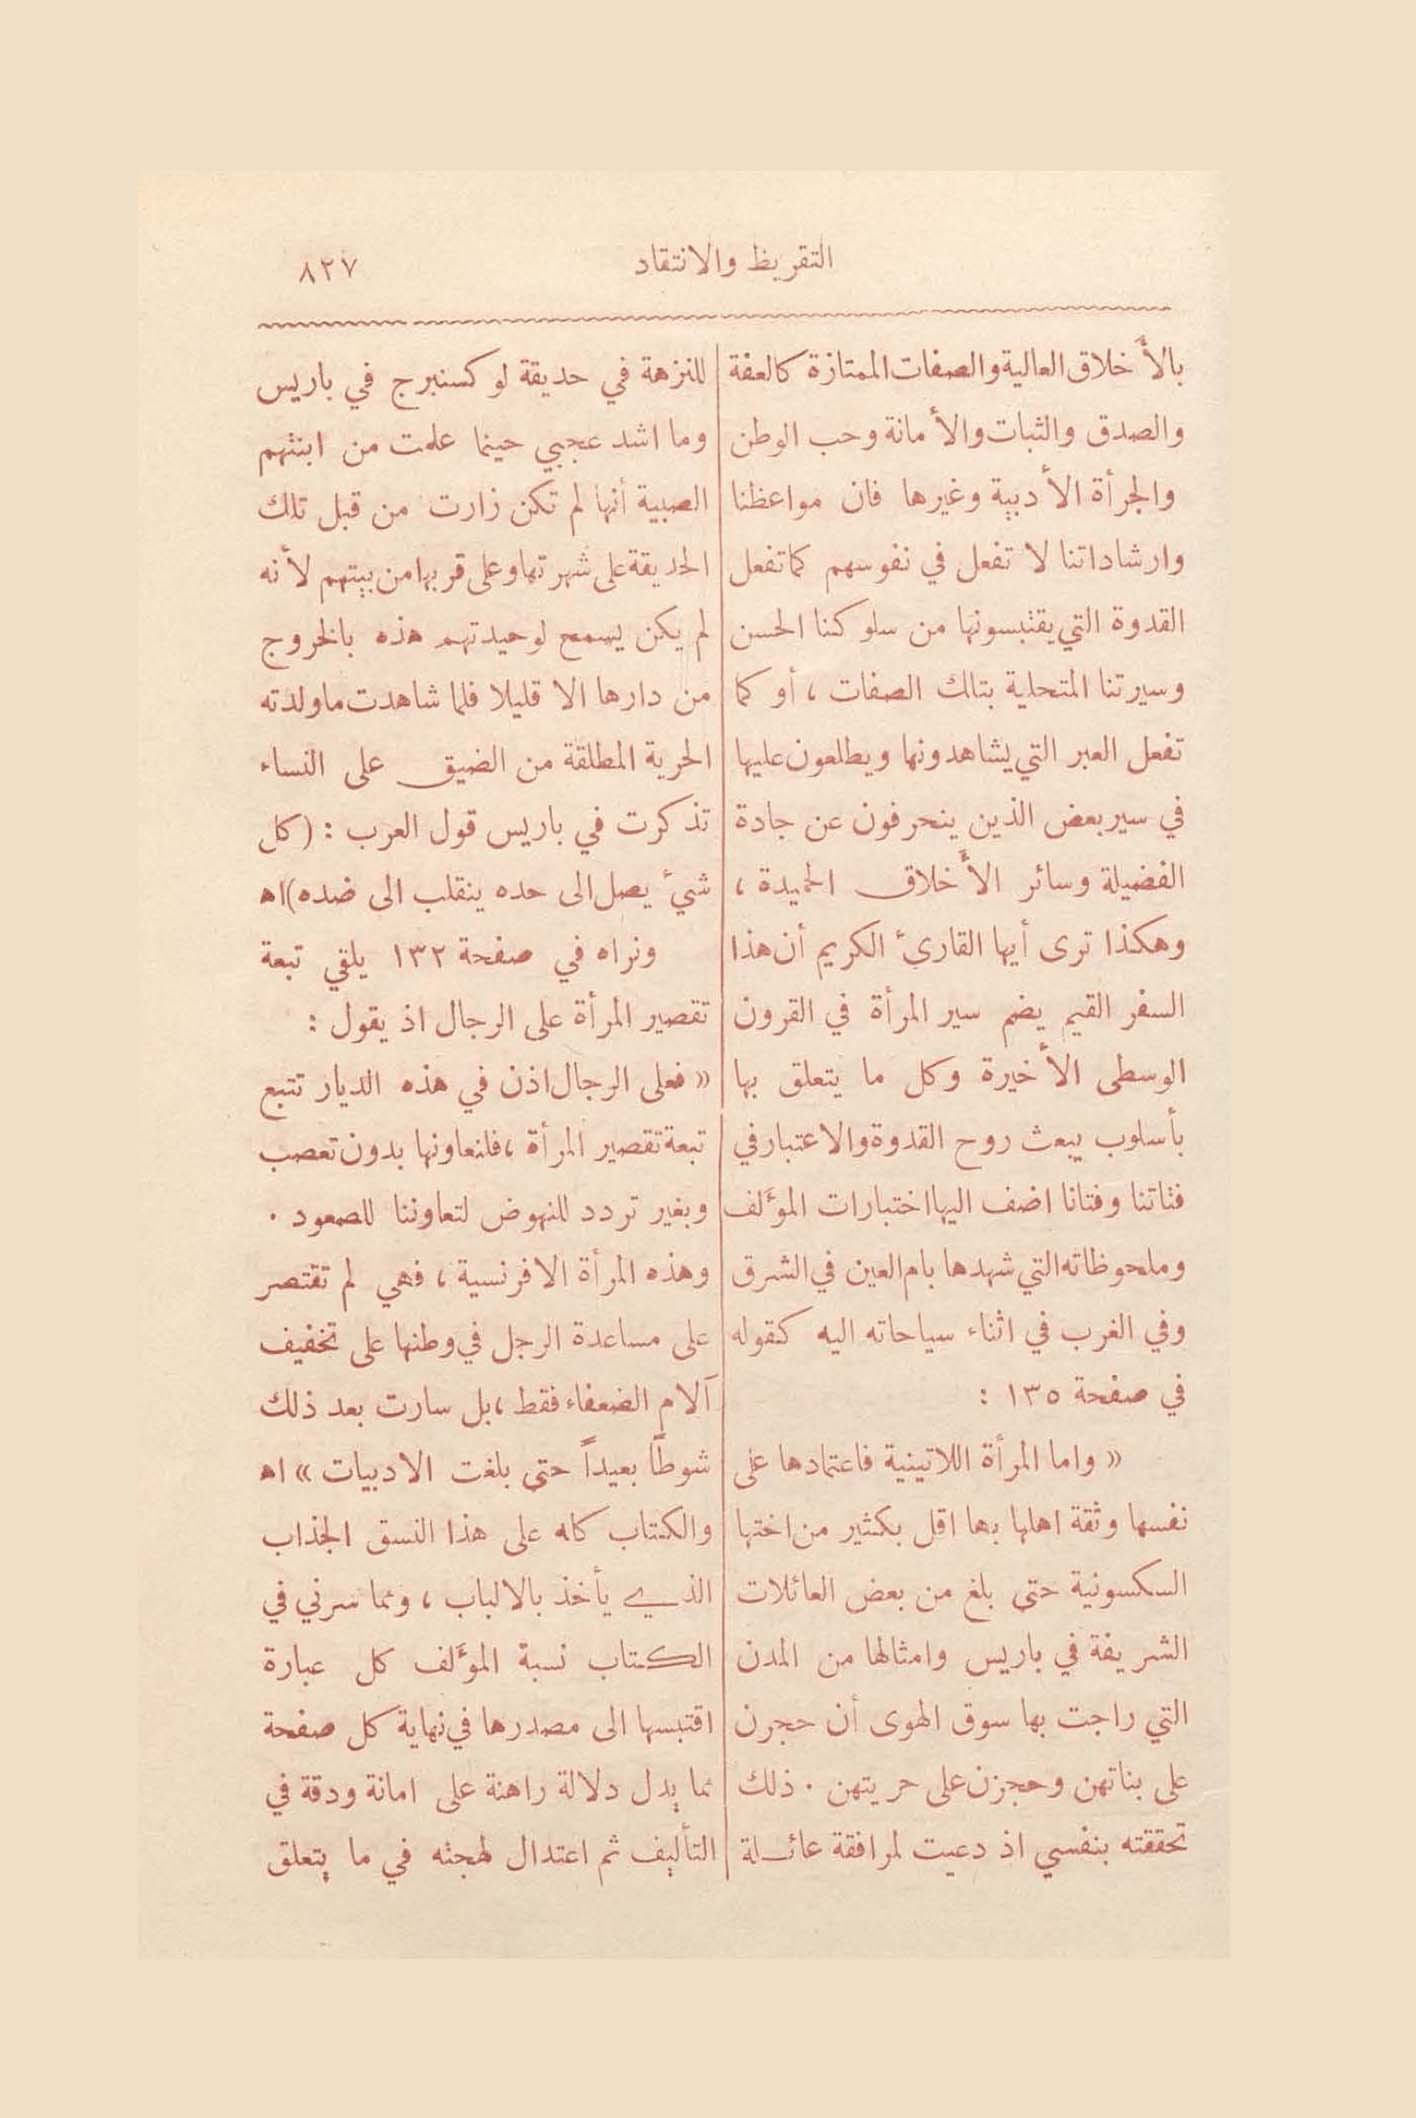 التقريظ والانتقاد
٨٢٧
بالأخلاق العالية والصفات الممتازة كالعفة
والصدق والثبات والأمانة وحب الوطن
والجرأة الأدبية وغيرها فان مواعظنا
وارشاداتنا لا تفعل في نفوسهم كما تفعل
القدوة التي يقتبسونها من سلوكنا الحسن
وسيرتنا المتحلية بتلك الصفات ، أو كما
تفعل العبر التي يشاهدونها ويطلعون عليها
في سير بعض الذين ينحرفون عن جادة
الفضيلة وسائر الأخلاق الحميدة ،
وهكذا ترى أيها القارئ الكريم أن هذا
السفر القيم يضم سير المرأة في القرون
الوسطى الأخيرة وكل ما يتعلق بها
بأسلوب يبعث روح القدوة والاعتبار في
فتاتنا وفتانا اضف اليها اختبارات المؤلف
وملحوظاته التي شهدها بام العين في الشرق
وفي الغرب في اثناء سياحاته اليه كقوله
في صفحة ١٣٥ :
« واما المرأة اللاتينية فاعتمادها على
نفسها وثقة اهلها بها اقل بكثير من اختها
السكسونية حتى بلغ من بعض العائلات
الشريفة في باريس وامثالها من المدن
التي راجت بها سوق الهوى أن حجرن
على بناتهن وحجزن على حريتهن . ذلك
تحققته بنفسي اذ دعيت لمرافقة عائلة
للنزهة في حديقة لوكسنبرج في باريس
وما اشد عجبي حينما علمت من ابنتهم
الصبية أنها لم تكن زارت من قبل تلك
الحديقة على شهرتها وعلى قربها من بيتهم لأنه
لم يكن يسمح لوحيدتهم هذه بالخروج
من دارها الا قليلا فلما شاهدت ما ولدته
الحرية المطلقة من الضيق على النساء
تذكرت في باريس قول العرب : (كل
شيء يصل الى حده ينقلب الى ضده) اه
ونراه في صفحة ١٣٢ يلقي تبعة
تقصير المرأة على الرجال اذ يقول :
« فعلى الرجال اذن في هذه الديار تتبع
تبعة تقصير المرأة ، فلنعاونها بدون تعصب
وبغير تردد للنهوض لتعاوننا للصعود .
وهذه المرأة الافرنسية ، فهي لم تقتصر
على مساعدة الرجل في وطنها على تخفيف
آلام الضعفاء فقط ، بل سارت بعد ذلك
شوطًا بعيداً حتى بلغت الادبيات » اه
والكتاب كله على هذا النسق الجذاب
الذي يأخذ بالالباب ، ومما سرني في
الكتاب نسبة المؤلف كل عبارة
اقتبسها الى مصدرها في نهاية كل صفحة
مما يدل دلالة راهنة على امانة ودقة في
التأليف ثم اعتدال لهجته في ما يتعلق